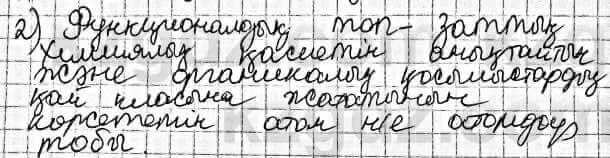 2) Функционалдық топ- заттың
химиялық қасиетін анықтайтын
және органикалық қосылыстардың
қай класына жататынын
көрсететін атом н/е атомдар
тобы.